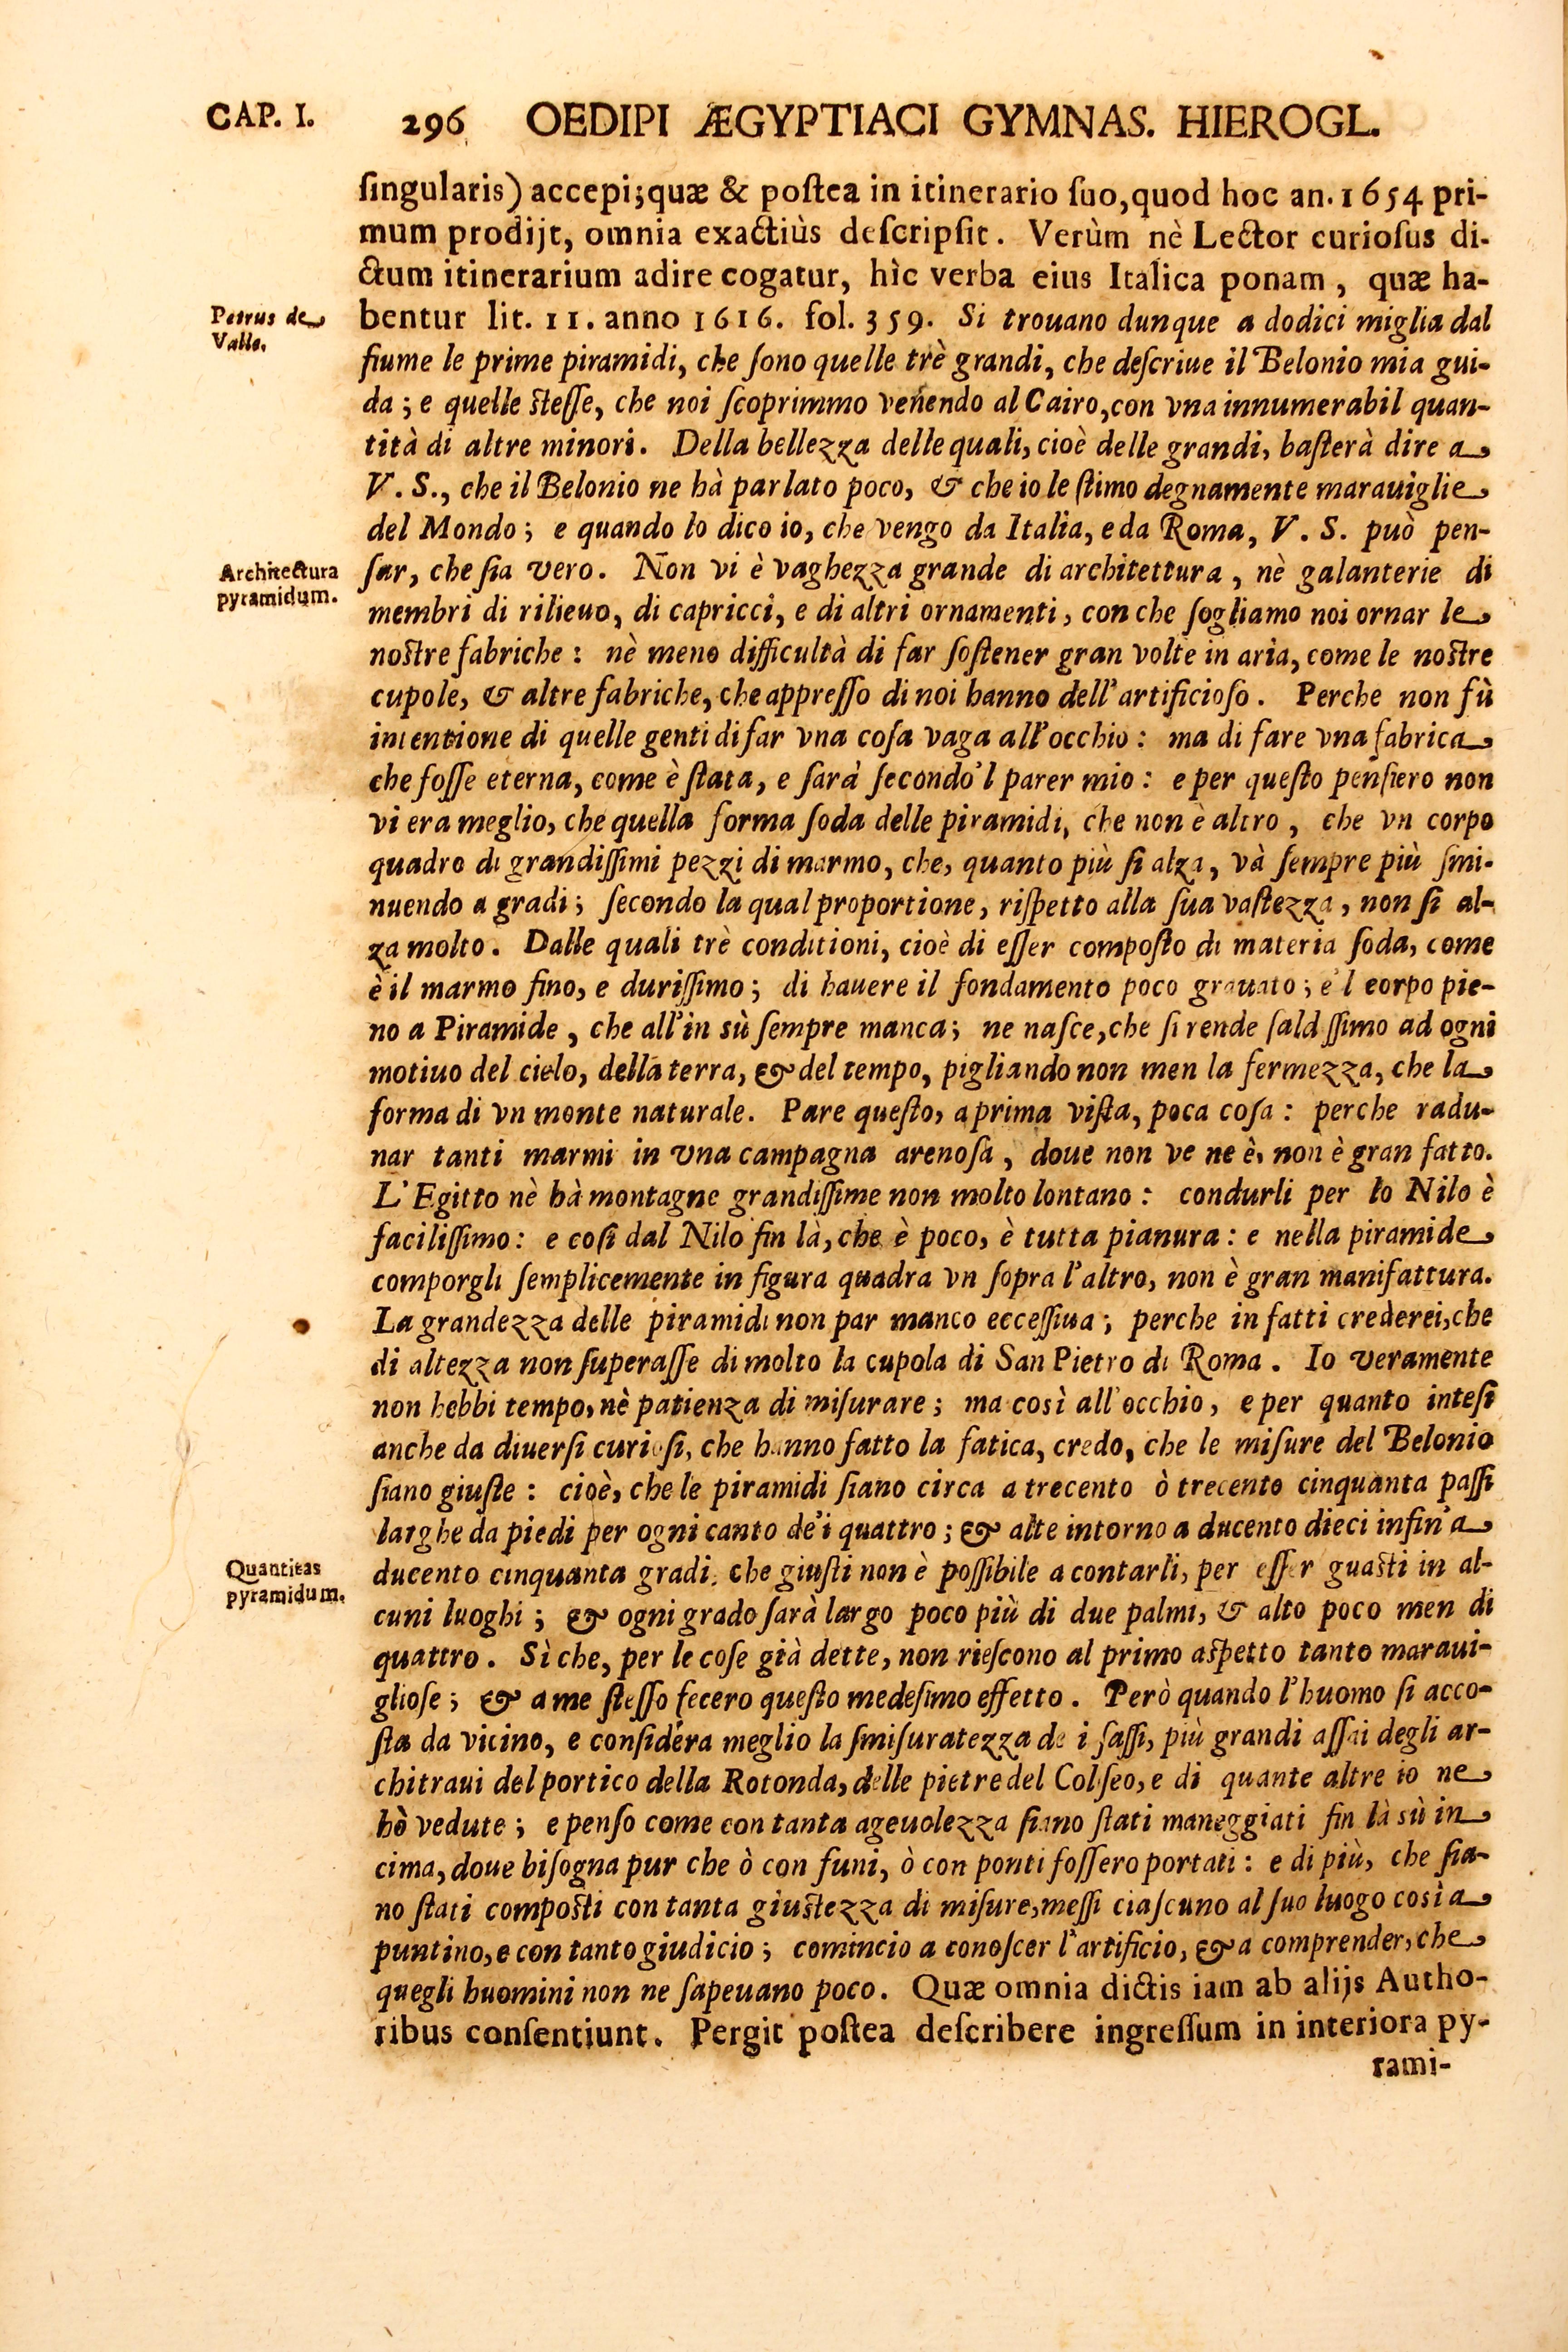 CAP. I. 296 OEDIPI ÆGYPTIACI GYMNAS. HIEROGL.
ſingularis) accepi; quæ & poſtea in itinerario ſuo, quod hoc an. 1654 pri-
mum prodijt, omnia exactiùs deſcripſit. Verùm nè Lector curioſus di-
ctum itinerarium adire cogatur, hìc verba eius Italica ponam, quæ ha-
Petrus de
Valle.
bentur lit. 11. anno 1616. fol. 359. Si trouano dunque a dodici miglia dal
fiume le prime piramidi, che ſono quelle trè grandi, che deſcriue il Belonio mia gui-
da; e quelle steſſe, che noi ſcoprimmo venendo al Cairo, con vna innumerabil quan-
tità di altre minori. Della bellezza delle quali, cioè delle grandi, baſterà dire a
V. S., che il Belonio ne hà parlato poco, & che io le ſtimo degnamente marauiglie
del Mondo; e quando lo dico io, che vengo da Italia, e da Roma, V. S. può pen-
Architectura
pyramidum.
ſar, che ſia vero. Non vi è vaghezza grande di architettura, nè galanterie di
membri di rilieuo, di capricci, e di altri ornamenti, con che ſogliamo noi ornar le
nostre fabriche: nè meno difficultà di far ſoſtener gran volte in aria, come le nostre
cupole, & altre fabriche, che appreſſo di noi hanno dell'artificioſo. Perche non fù
intentione di quelle genti di far vna coſa vaga all'occhio: ma di fare vna fabrica
che foſſe eterna, come è ſtata, e ſarà ſecondo'l parer mio: e per queſto penſiero non
vi era meglio, che quella forma ſoda delle piramidi, che non è altro, che vn corpo
quadro di grandiſſimi pezzi di marmo, che, quanto più ſi alza, và ſempre più ſmi-
nuendo a gradi; ſecondo la qual proportione, riſpetto alla ſua vaſtezza, non ſi al-
za molto. Dalle quali trè conditioni, cioè di eſſer compoſto di materia ſoda, come
è il marmo fino, e duriſſimo; di hauere il fondamento poco grauato; e'l corpo pie-
no a Piramide, che all'in sù ſempre manca; ne naſce, che ſi rende ſaldiſſimo ad ogni
motiuo del cielo, della terra, & del tempo, pigliando non men la fermezza, che la
forma di vn monte naturale. Pare queſto, a prima viſta, poca coſa: perche radu-
nar tanti marmi in vna campagna arenoſa, doue non ve ne è, non è gran fatto.
L'Egitto nè hà montagne grandiſſime non molto lontano: condurli per lo Nilo è
faciliſſimo: e coſi dal Nilo fin là, che è poco, è tutta pianura: e nella piramide
comporgli ſemplicemente in figura quadra vn ſopra l'altro, non è gran manifattura.
La grandezza delle piramidi non par manco ecceſſiua; perche in fatti crederei, che
di altezza non ſuperaſſe di molto la cupola di San Pietro di Roma. Io veramente
non hebbi tempo, nè patienza di miſurare; ma così all'occhio, e per quanto inteſi
anche da diuerſi curioſi, che hanno fatto la fatica, credo, che le miſure del Belonio
ſiano giuſte: cioè, che le piramidi ſiano circa a trecento ò trecento cinquanta paſſi
larghe da piedi per ogni canto de'i quattro; & alte intorno a ducento dieci infin'a
Quantitas
pyramidum.
ducento cinquanta gradi, che giuſti non è poſſibile a contarli, per eſſer guaſti in al-
cuni luoghi; & ogni grado ſarà largo poco più di due palmi, & alto poco men di
quattro. Sì che, per le coſe già dette, non rieſcono al primo aſpetto tanto maraui-
glioſe; & a me ſteſſo fecero queſto medeſimo effetto. Però quando l'huomo ſi acco-
ſta da vicino, e conſidera meglio la ſmiſuratezza de i ſaſſi, più grandi aſſai degli ar-
chitraui del portico della Rotonda, delle pietre del Coliſeo, e di quante altre io ne
hò vedute; e penſo come con tanta ageuolezza ſiano ſtati maneggiati fin là sù in
cima, doue biſogna pur che ò con funi, ò con ponti foſſero portati: e di più, che ſia-
no ſtati compoſti con tanta giuſtezza di miſure, meſſi ciaſcuno al ſuo luogo così a
puntino, e con tanto giudicio; comincio a conoſcer l'artificio, & a comprender, che
quegli huomini non ne ſapeuano poco. Quæ omnia dictis iam ab alijs Autho-
ribus conſentiunt. Pergit poſtea deſcribere ingreſſum in interiora py-
rami-